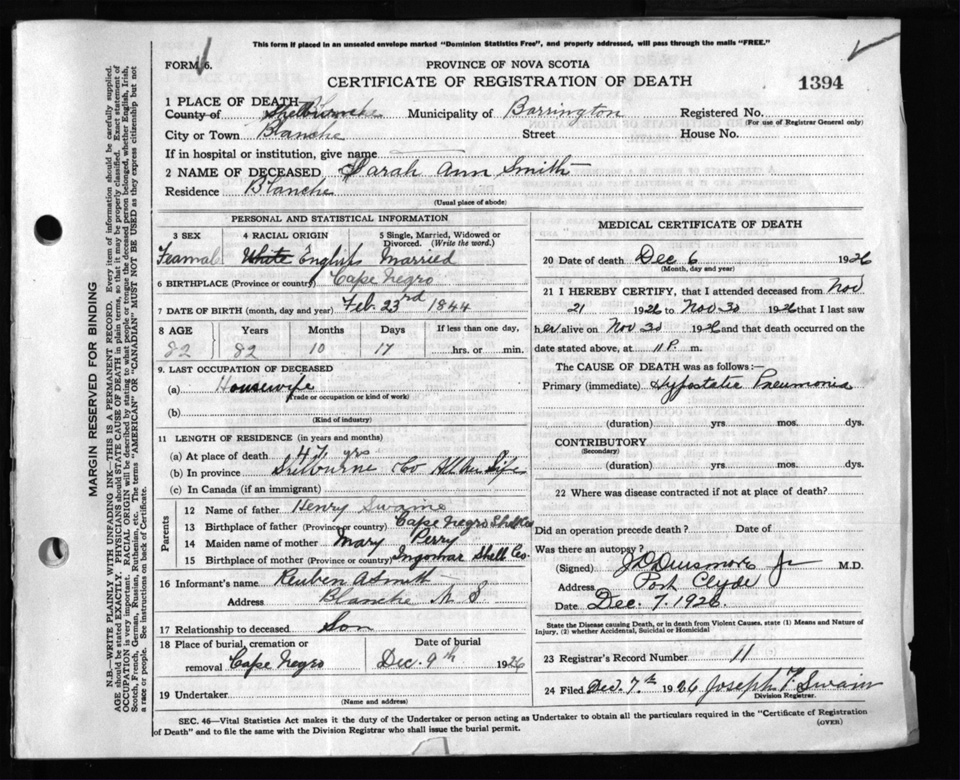 This form if placed in an unsealed envelope marked "Dominion Statistics Free", and properly addressed, will pass through the mails "FREE."
FORM 6.
PROVINCE OF NOVA SCOTIA
CERTIFICATE OF REGISTRATION OF DEATH
1394
1 PLACE OF DEATH
County of Shelburne Municipality of Barrington Registered No.
(For use of Registrar General only)
City or Town Blanche Street House No.
If in hospital or institution, give name
2 NAME OF DECEASED Sarah Ann Smith
Residence Blanche
(Usual place of abode)
PERSONAL AND STATISTICAL INFORMATION
3 SEX 4 RACIAL ORIGIN 5 Single, Married, Widowed or Divorced. (Write the word.)
Feamal White English Married
6 BIRTHPLACE (Province or country) Cape Negro
7 DATE OF BIRTH (month, day and year) Feb. 23rd 1844
8 AGE Years Months Days If less than one day,
82 82 10 17 hrs. or min.
9. LAST OCCUPATION OF DECEASED
(a) Housewife
(Trade or occupation or kind of work)
(b)
(Kind of industry)
11 LENGTH OF RESIDENCE (in years and months)
(a) At place of death 47 yrs
(b) In province Shelburne Co All her Life
(c) In Canada (if an immigrant)
Parents
12 Name of father Henry Swaine
13 Birthplace of father (Province or country) Cape Negro Shel Co
14 Maiden name of mother Mary Perry
15 Birthplace of mother (Province or country) Ingomar Shell Co.
16 Informant's name Reuben A Smith
Address Blanche N S
17 Relationship to deceased Son
18 Place of burial, cremation or Date of burial
removal Cape Negro Dec. 9th 1926
19 Undertaker
(Name and address)
MEDICAL CERTIFICATE OF DEATH
20 Date of death Dec 6 1926
(Month, day and year)
21 I HEREBY CERTIFY, that I attended deceased from Nov
21 1926 to Nov 30 1926 that I last saw
h.er alive on Nov 30 1926 and that death occurred on the
date stated above, at 11 P. m.
The CAUSE OF DEATH was as follows:—
Primary (immediate) Hypostatic Pneumonia
(duration) yrs. mos. dys.
CONTRIBUTORY
(Secondary)
(duration) yrs. mos. dys.
22 Where was disease contracted if not at place of death?
Did an operation precede death? Date of
Was there an autopsy?
(Signed) J D Densmore Jr M.D.
Address Port Clyde
Date Dec. 7. 1926.
State the Disease causing Death, or in death from Violent Causes, state (1) Means and Nature of Injury, (2) whether Accidental, Suicidal or Homicidal
23 Registrar's Record Number 11
24 Filed Dec. 7th 1926 Joseph F. Swain
Division Registrar.
SEC. 46—Vital Statistics Act makes it the duty of the Undertaker or person acting as Undertaker to obtain all the particulars required in the "Certificate of Registration
of Death" and to file the same with the Division Registrar who shall issue the burial permit.
(OVER)
MARGIN RESERVED FOR BINDING
N.B.—WRITE PLAINLY WITH UNFADING INK—THIS IS A PERMANENT RECORD. Every item of information should be carefully supplied.
AGE should be stated EXACTLY. PHYSICIANS should STATE CAUSE OF DEATH in plain terms, so that it may be properly classified. Exact statement of
OCCUPATION is very important. RACIAL ORIGIN will be described by stating to what people or tongue the deceased person belonged, whether English, Irish,
Scotch, French, German, Russian, Ruthenian, etc. The terms "AMERICAN" OR "CANADIAN" MUST NOT BE USED as they express citizenship but not
a race or people. See instructions on back of Certificate.